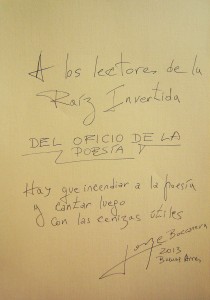 A los lectores de la
Raíz Invertida
DEL OFICIO DE LA
POESÍA
Hay que incendiar a la poesía
y cantar luego
con las cenizas útiles
Jorge Boccanera
2013
Buenos Aires